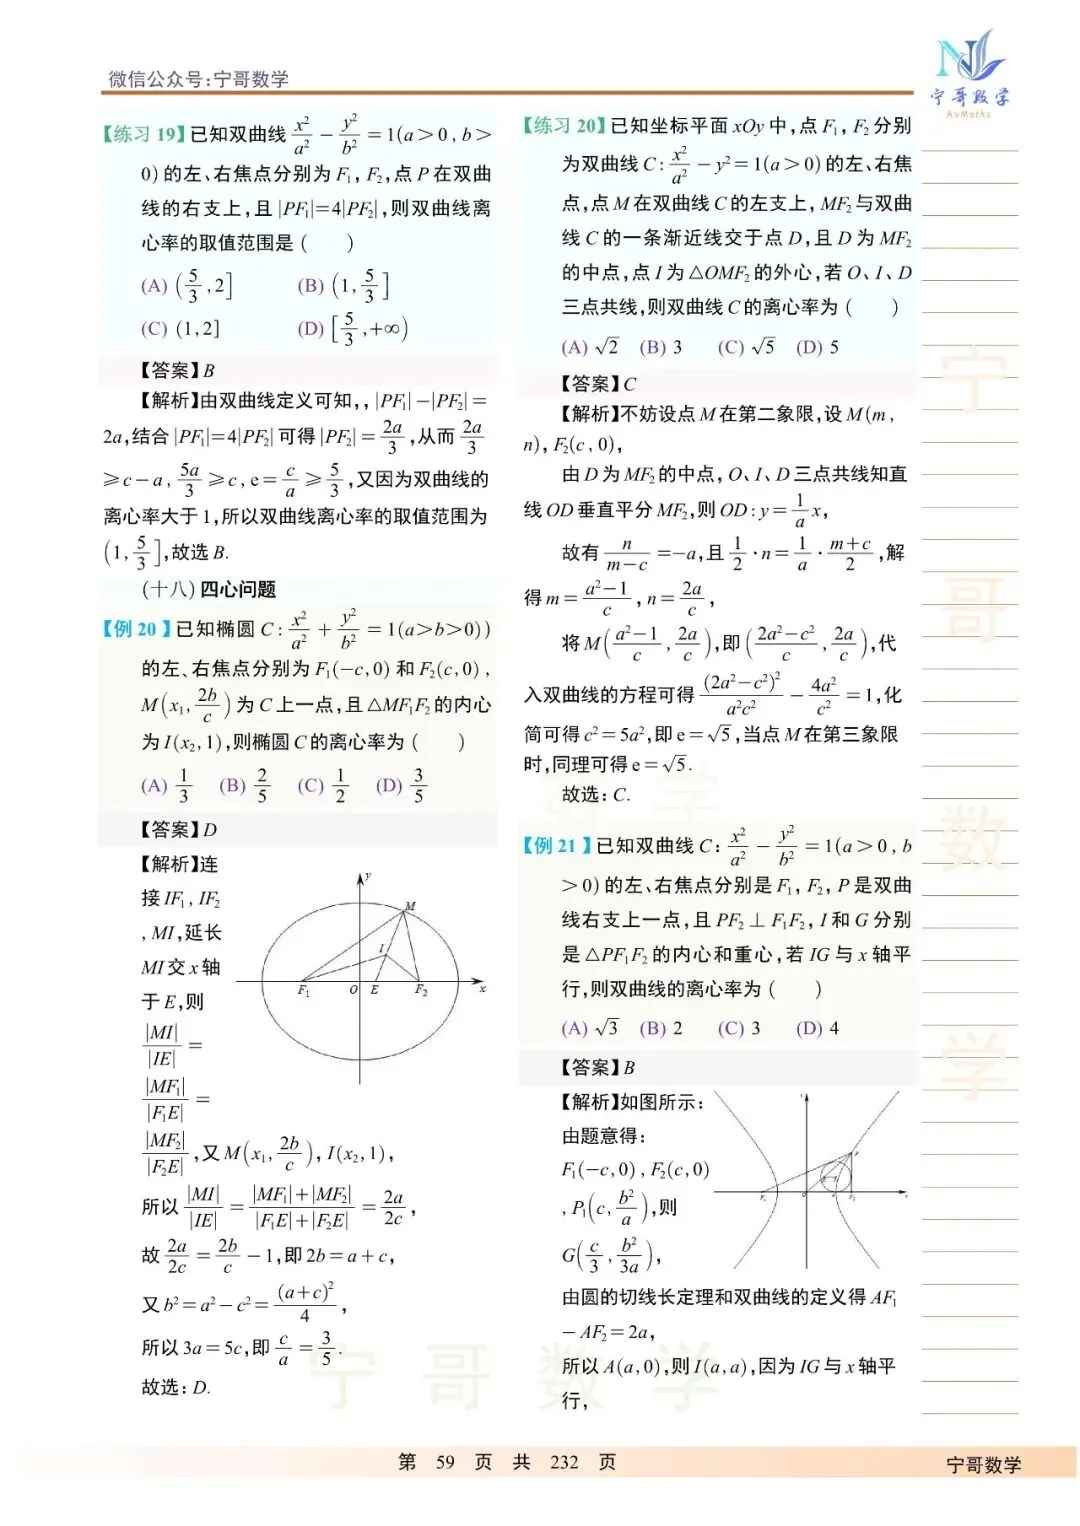 微信公众号:宁哥数学
宁哥数学
AyMaths
【练习 19】已知双曲线 x²/a² − y²/b² = 1(a > 0 , b >
0) 的左、右焦点分别为 F₁ , F₂ ,点 P 在双曲
线的右支上,且 |PF₁|=4|PF₂| ,则双曲线离
心率的取值范围是 (　　)
(A) (5/3 ,2]　　(B) (1, 5/3]
(C) (1,2]　　(D) [5/3 ,+∞)
【答案】B
【解析】由双曲线定义可知, , |PF₁| −|PF₂| =
2a ,结合 |PF₁|=4|PF₂| 可得 |PF₂| = 2a/3 ,从而 2a/3
≥ c − a , 5a/3 ≥ c , e = c/a ≥ 5/3 ,又因为双曲线的
离心率大于 1 ,所以双曲线离心率的取值范围为
(1, 5/3] ,故选 B.
(十八) 四心问题
【例 20】已知椭圆 C : x²/a² + y²/b² = 1(a>b>0))
的左、右焦点分别为 F₁(−c,0) 和 F₂(c,0) ,
M(x₁, 2b/c) 为 C 上一点,且 △MF₁F₂ 的内心
为 I(x₂,1) ,则椭圆 C 的离心率为 (　　)
(A) 1/3　(B) 2/5　(C) 1/2　(D) 3/5
【答案】D
【解析】连
接 IF₁ , IF₂
, MI ,延长
MI 交 x 轴
于 E ,则
|MI|/|IE| =
|MF₁|/|F₁E| =
|MF₂|/|F₂E| ,又 M(x₁, 2b/c) , I(x₂,1) ,
y
M
I
F₁
O
E
F₂
x
所以 |MI|/|IE| = (|MF₁|+|MF₂|)/(|F₁E|+|F₂E|) = 2a/2c ,
故 2a/2c = 2b/c − 1 ,即 2b = a + c ,
又 b² = a² − c² = (a+c)²/4 ,
所以 3a = 5c ,即 c/a = 3/5 .
故选: D.
【练习 20】已知坐标平面 xOy 中,点 F₁ , F₂ 分别
为双曲线 C : x²/a² − y² = 1(a>0) 的左、右焦
点,点 M 在双曲线 C 的左支上, MF₂ 与双曲
线 C 的一条渐近线交于点 D ,且 D 为 MF₂
的中点,点 I 为 △OMF₂ 的外心,若 O、I、D
三点共线,则双曲线 C 的离心率为 (　　)
(A) √2　(B) 3　(C) √5　(D) 5
【答案】C
【解析】不妨设点 M 在第二象限,设 M(m ,
n) , F₂(c , 0) ,
由 D 为 MF₂ 的中点, O、I、D 三点共线知直
线 OD 垂直平分 MF₂ ,则 OD : y = 1/a x ,
故有 n/(m−c) = −a ,且 1/2 · n = 1/a · (m+c)/2 ,解
得 m = (a²−1)/c , n = 2a/c ,
将 M((a²−1)/c , 2a/c) ,即 ((2a²−c²)/c , 2a/c) ,代
入双曲线的方程可得 (2a²−c²)²/a²c² − 4a²/c² = 1 ,化
简可得 c² = 5a² ,即 e = √5 ,当点 M 在第三象限
时,同理可得 e = √5 .
故选: C.
【例 21】已知双曲线 C : x²/a² − y²/b² = 1(a > 0 , b
> 0) 的左、右焦点分别是 F₁ , F₂ , P 是双曲
线右支上一点,且 PF₂ ⊥ F₁F₂ , I 和 G 分别
是 △PF₁F₂ 的内心和重心,若 IG 与 x 轴平
行,则双曲线的离心率为 (　　)
(A) √3　(B) 2　(C) 3　(D) 4
【答案】B
【解析】如图所示:
由题意得:
F₁(−c,0) , F₂(c,0)
, P₁(c, b²/a) ,则
G(c/3 , b²/3a) ,
由圆的切线长定理和双曲线的定义得 AF₁
− AF₂ = 2a ,
所以 A(a,0) ,则 I(a,a) ,因为 IG 与 x 轴平
行,
宁
哥
数
学
宁 哥 数 学
第 59 页 共 232 页
宁哥数学